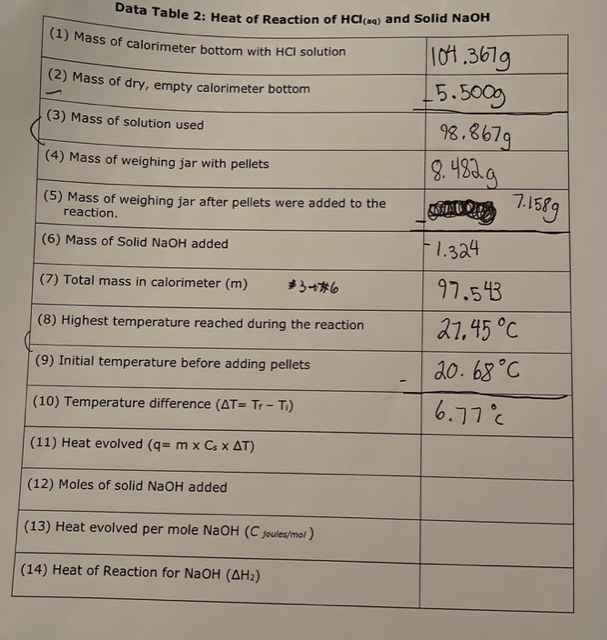 Data Table 2: Heat of Reaction of HCl(aq) and Solid NaOH
(1) Mass of calorimeter bottom with HCl solution 104.367g
(2) Mass of dry, empty calorimeter bottom - 5.500g
(3) Mass of solution used 98.867g
(4) Mass of weighing jar with pellets 8.482g
(5) Mass of weighing jar after pellets were added to the - 7.158g
reaction.
(6) Mass of Solid NaOH added - 1.324
(7) Total mass in calorimeter (m) #3+#6 97.543
(8) Highest temperature reached during the reaction 27.45 °C
(9) Initial temperature before adding pellets - 20.68 °C
(10) Temperature difference (ΔT= Tf – Ti) 6.77 °C
(11) Heat evolved (q= m x Cs x ΔT)
(12) Moles of solid NaOH added
(13) Heat evolved per mole NaOH (C joules/mol)
(14) Heat of Reaction for NaOH (ΔH2)